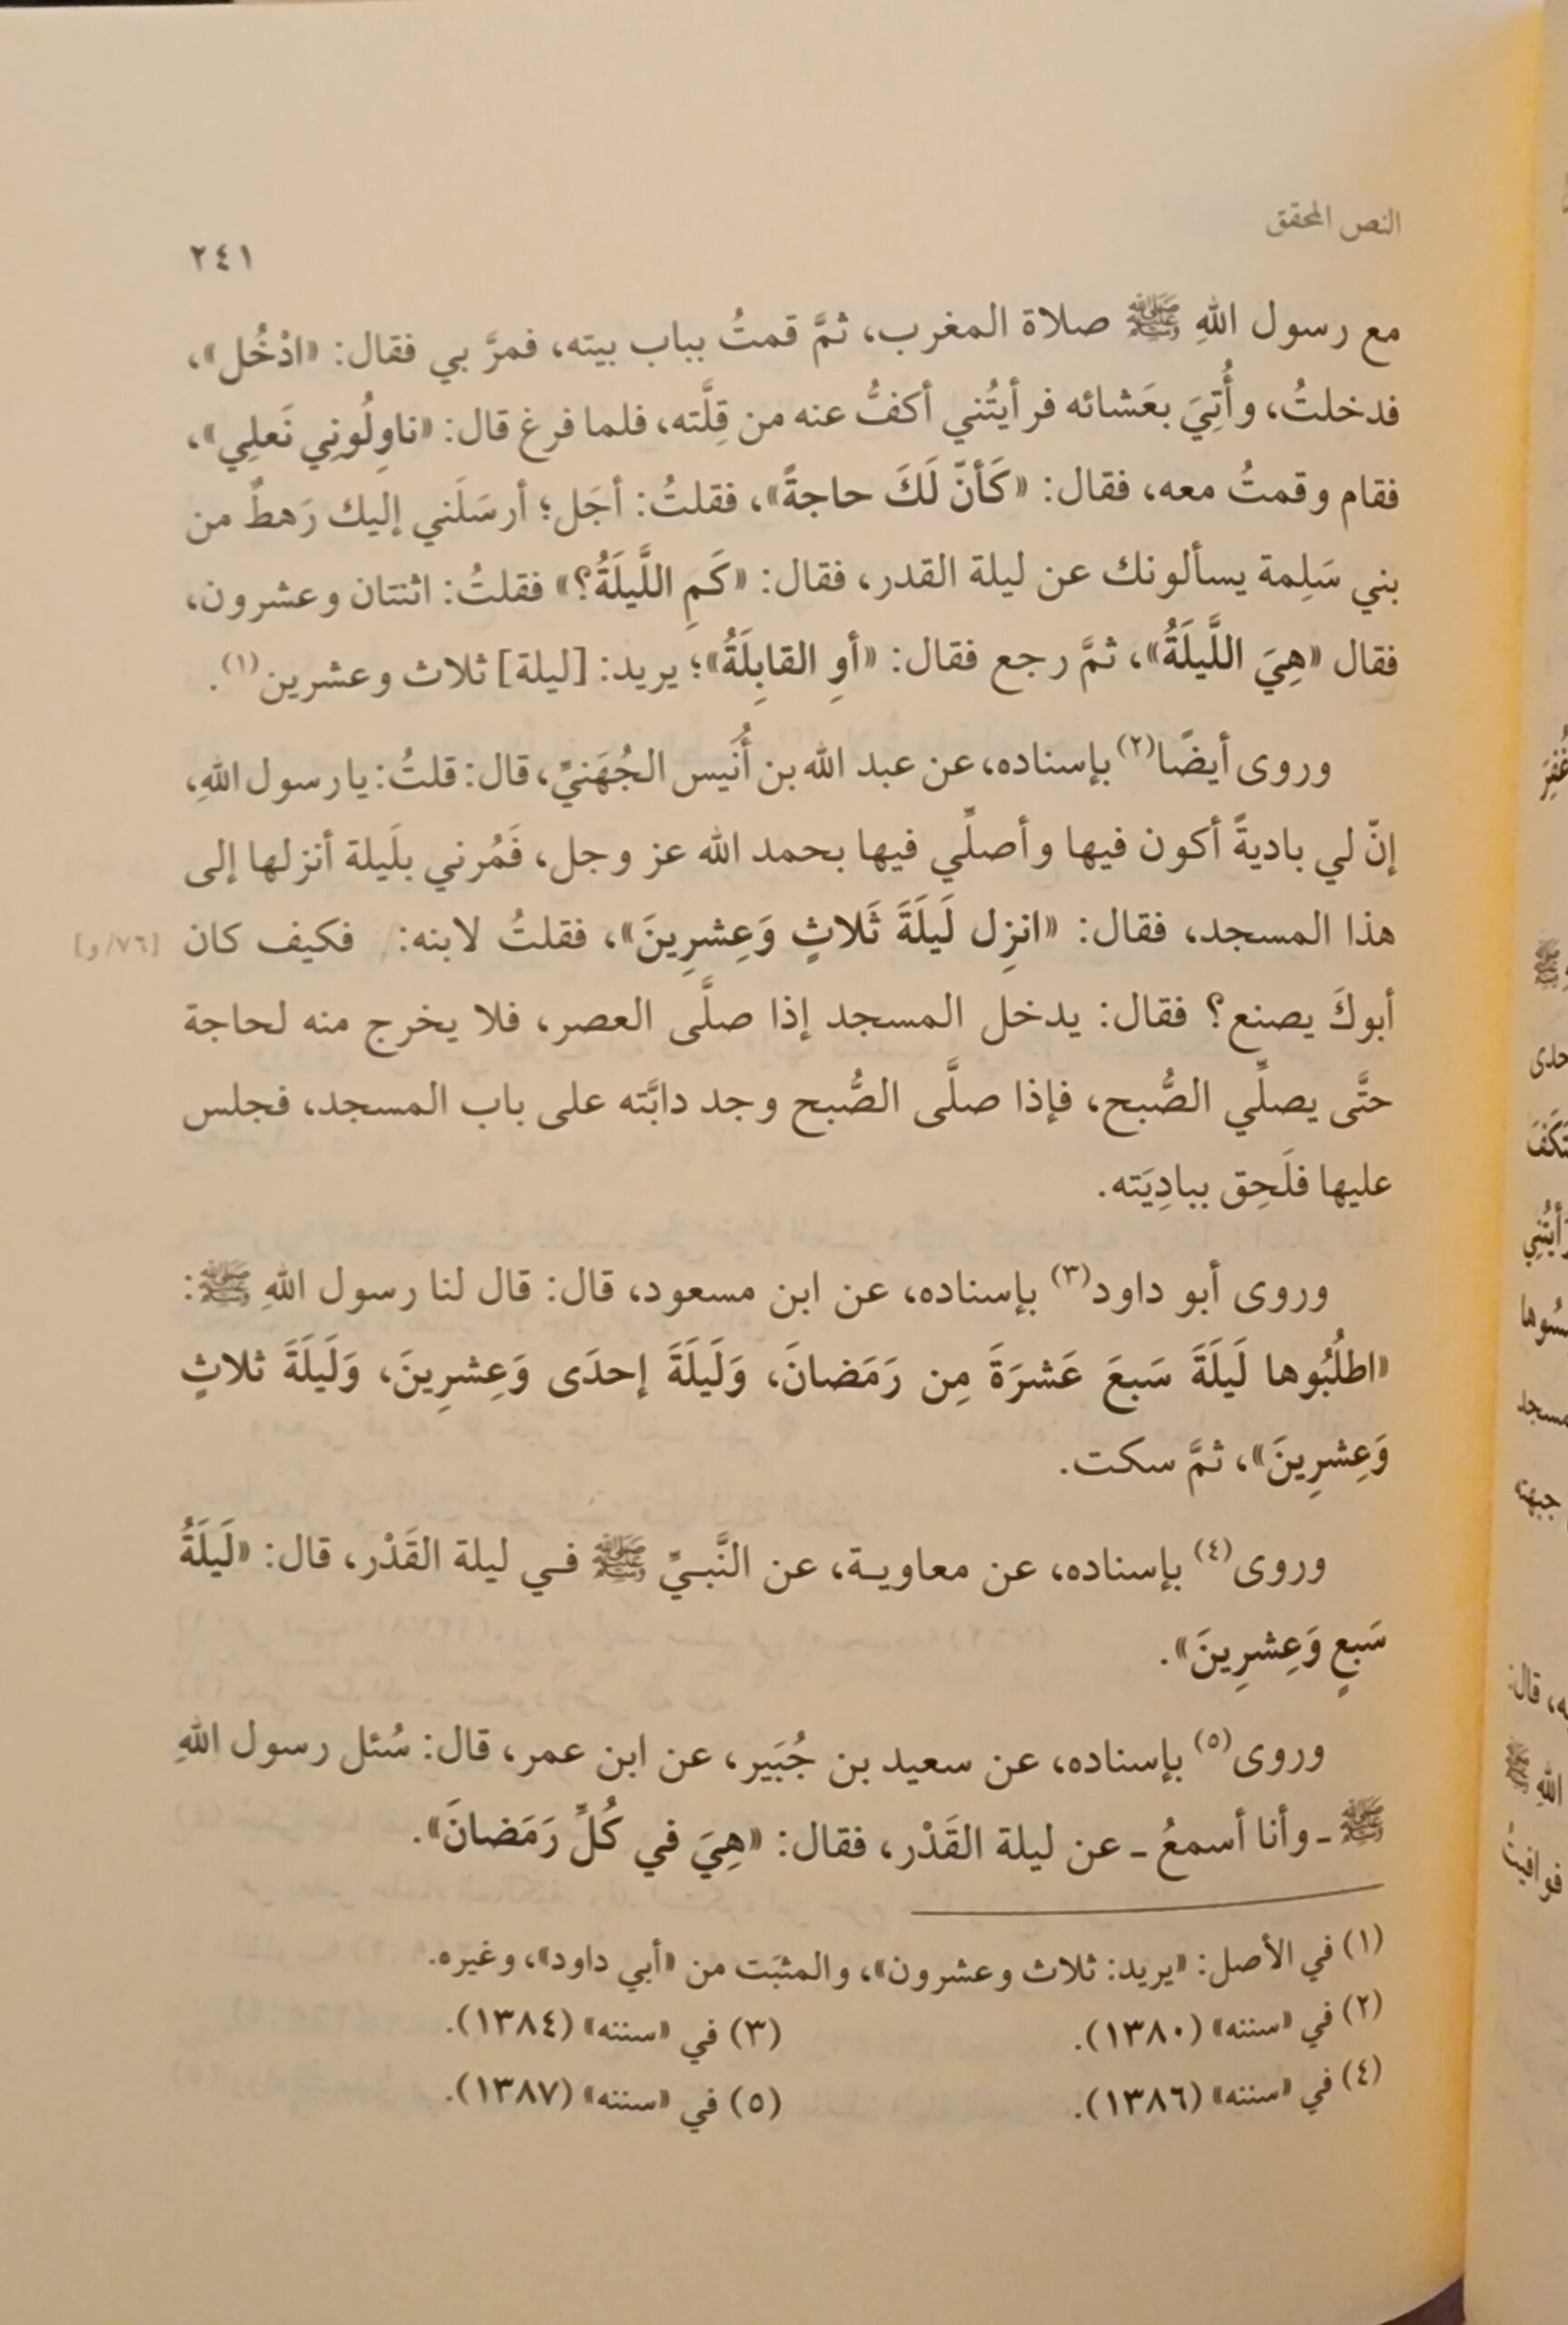 النص المحقق
٢٤١
مع رسول اللهِ ﷺ صلاة المغرب، ثمَّ قمتُ بباب بيته، فمرَّ بي فقال: «ادْخُل»،
فدخلتُ، وأُتِيَ بعَشائه فرأيتُني أكفُّ عنه من قِلَّته، فلما فرغ قال: «ناوِلُونِي نَعلِي»،
فقام وقمتُ معه، فقال: «كَأنّ لَكَ حاجةً»، فقلتُ: أجَل؛ أرسَلَني إليك رَهطٌ من
بني سَلِمة يسألونك عن ليلة القدر، فقال: «كَمِ اللَّيلَةُ؟» فقلتُ: اثنتان وعشرون،
فقال «هِيَ اللَّيلَةُ»، ثمَّ رجع فقال: «أوِ القابِلَةُ»؛ يريد: [ليلة] ثلاث وعشرين(١).
وروى أيضًا(٢) بإسناده، عن عبد الله بن أُنَيس الجُهَنيِّ، قال: قلتُ: يا رسول اللهِ،
إنّ لي باديةً أكون فيها وأصلِّي فيها بحمد الله عز وجل، فَمُرني بلَيلة أنزلها إلى
هذا المسجد، فقال: «انزِل لَيلَةَ ثَلاثٍ وَعِشرِينَ»، فقلتُ لابنه: / فكيف كان [٧٦/و]
أبوكَ يصنع؟ فقال: يدخل المسجد إذا صلَّى العصر، فلا يخرج منه لحاجة
حتَّى يصلِّي الصُّبح، فإذا صلَّى الصُّبح وجد دابَّته على باب المسجد، فجلس
عليها فلَحِق ببادِيَته.
وروى أبو داود(٣) بإسناده، عن ابن مسعود، قال: قال لنا رسول اللهِ ﷺ:
«اطلُبُوها لَيلَةَ سَبعَ عَشرَةَ مِن رَمَضانَ، وَلَيلَةَ إحدَى وَعِشرِينَ، وَلَيلَةَ ثلاثٍ
وَعِشرِينَ»، ثمَّ سكت.
وروى(٤) بإسناده، عن معاويـة، عن النَّبـيِّ ﷺ فـي ليلة القَدْر، قال: «لَيلَةُ
سَبعٍ وَعِشرِينَ».
وروى(٥) بإسناده، عن سعيد بن جُبَير، عن ابن عمر، قال: سُئل رسول اللهِ
ﷺ ـ وأنا أسمعُ ـ عن ليلة القَدْر، فقال: «هِيَ في كُلِّ رَمَضانَ».
(١) في الأصل: «يريد: ثلاث وعشرون»، والمثبَت من «أبي داود»، وغيره.
(٢) في «سننه» (١٣٨٠). (٣) في «سننه» (١٣٨٤).
(٤) في «سننه» (١٣٨٦). (٥) في «سننه» (١٣٨٧).